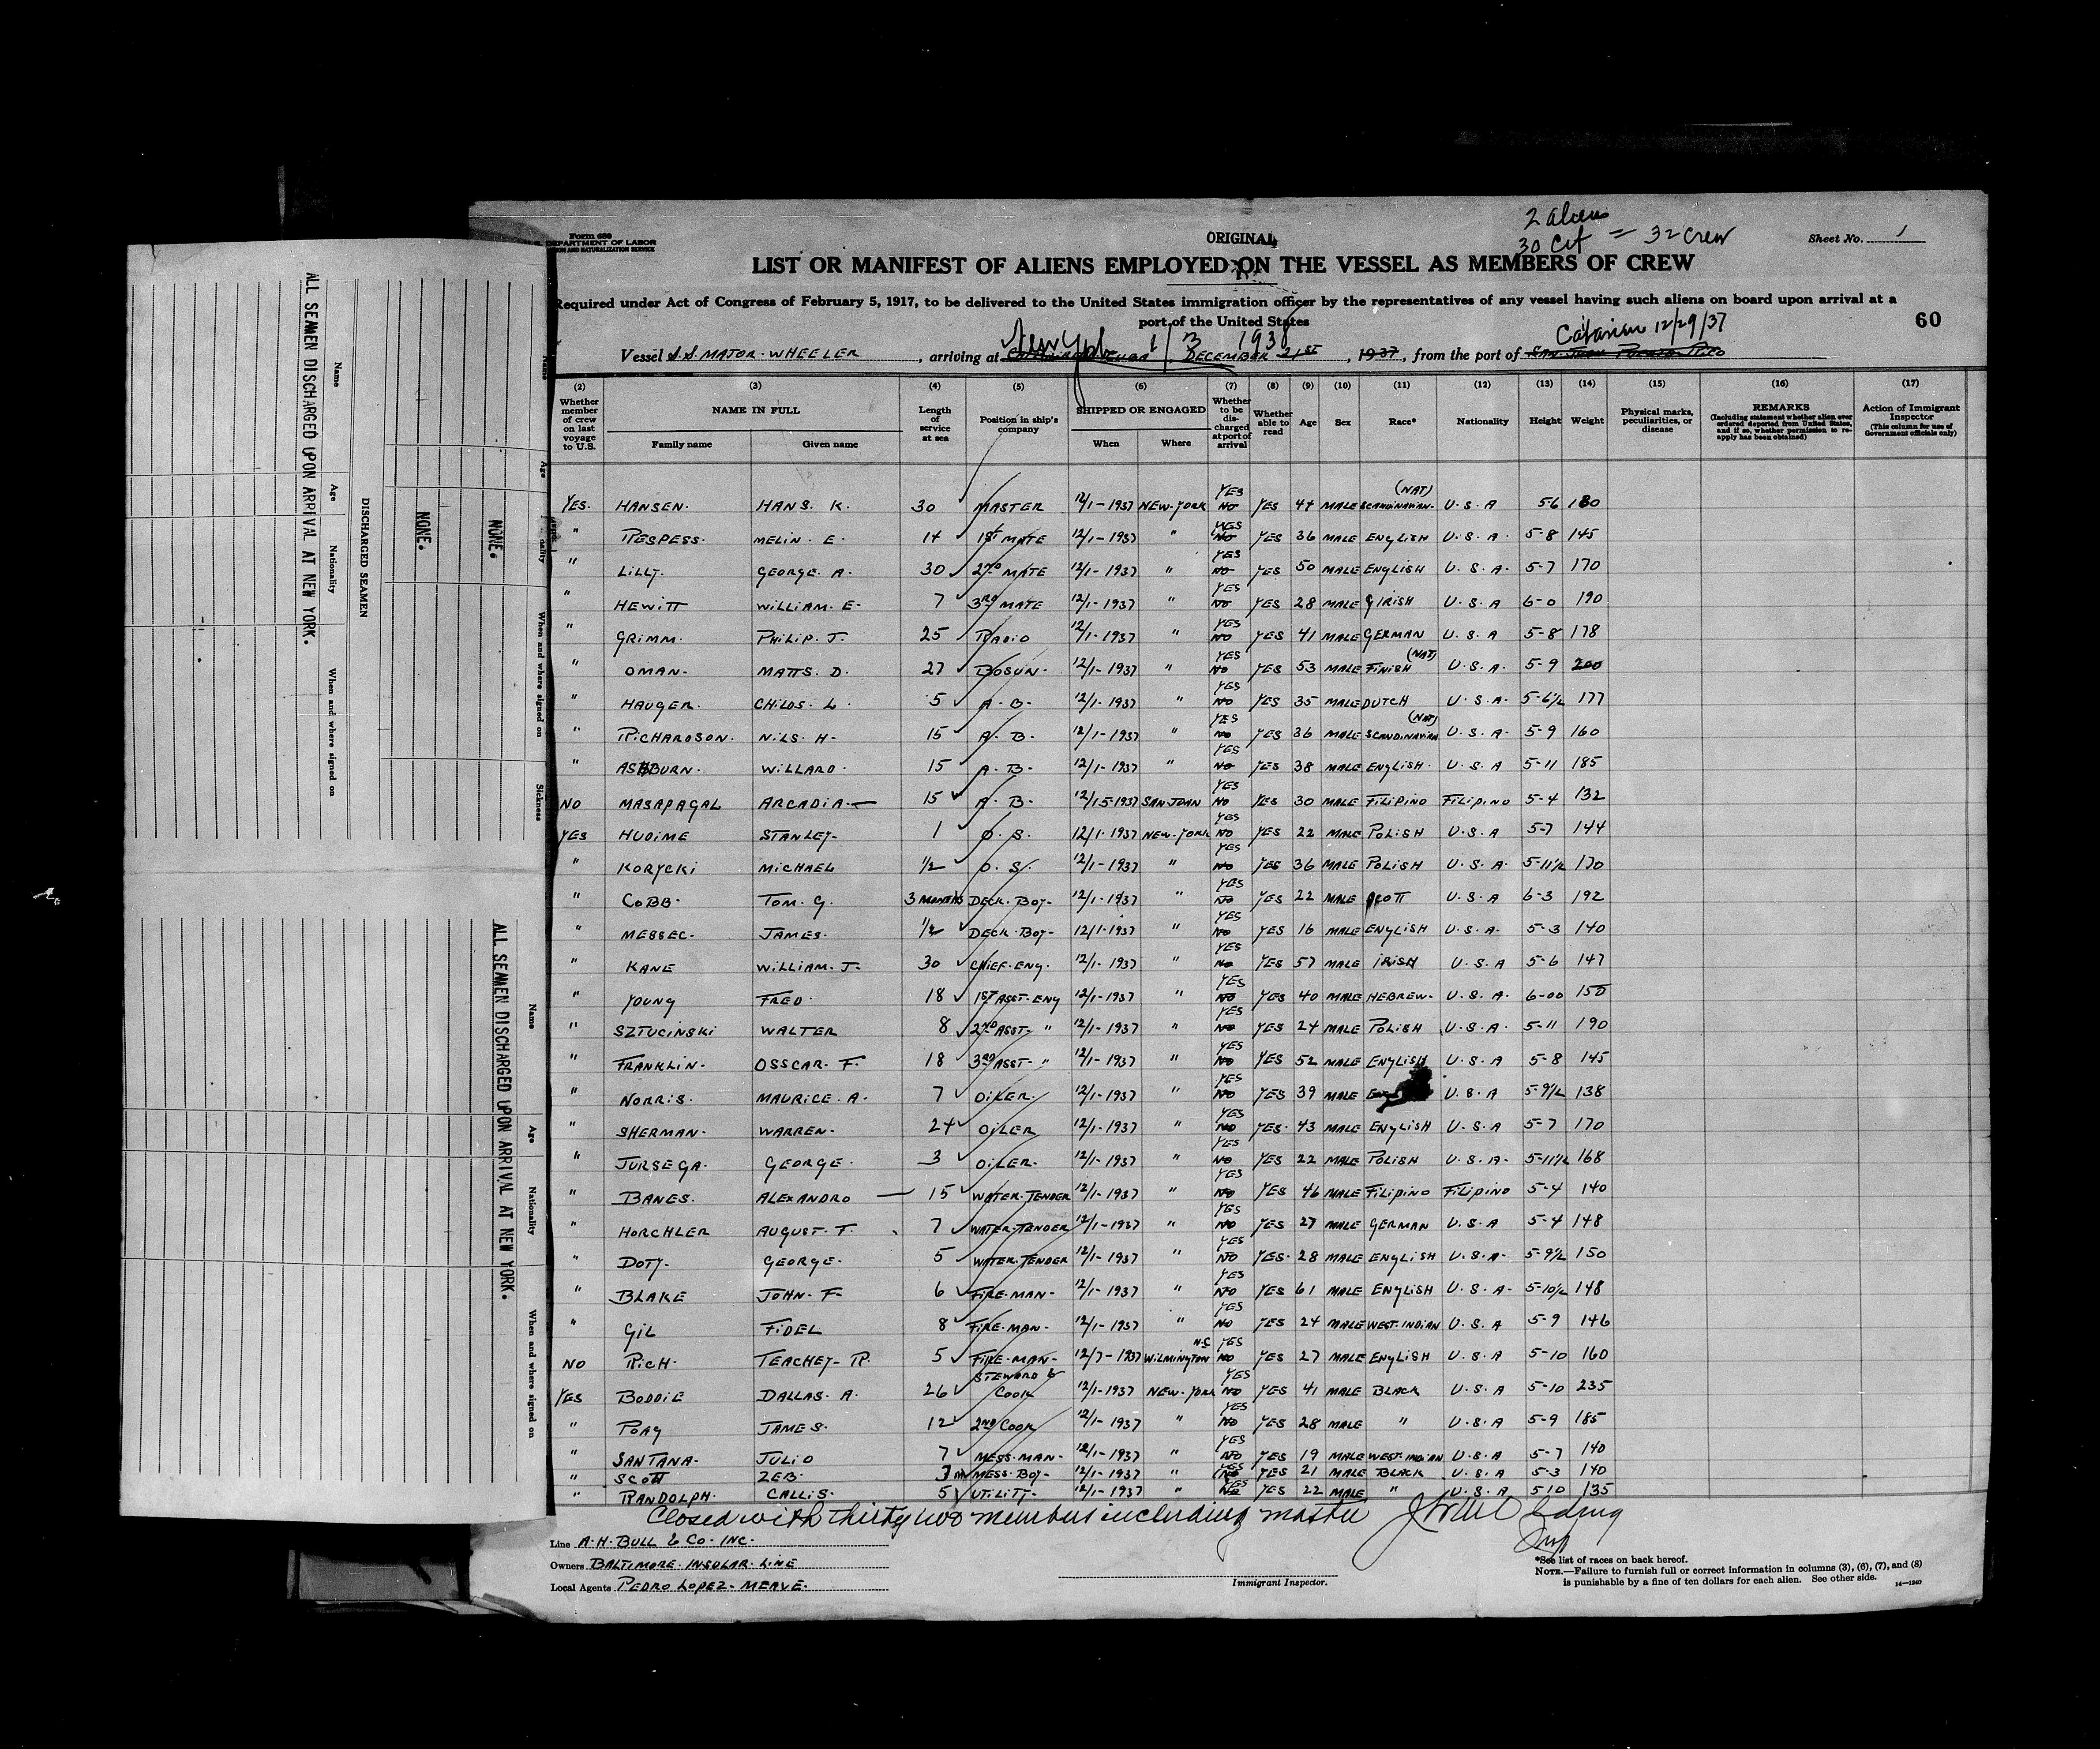 Form 680
U. S. DEPARTMENT OF LABOR
IMMIGRATION AND NATURALIZATION SERVICE
ORIGINAL
2 aliens
30 Cit = 32 crew
Sheet No. 1
LIST OR MANIFEST OF ALIENS EMPLOYED ON THE VESSEL AS MEMBERS OF CREW
Required under Act of Congress of February 5, 1917, to be delivered to the United States immigration officer by the representatives of any vessel having such aliens on board upon arrival at a
port of the United States
60
New York 1/3 1938
12/29/37
Vessel S.S. MAJOR WHEELER, arriving at CUBA DECEMBER 21ST, 1937, from the port of SAN JUAN PUERTO RICO
(2) (3) (4) (5) (6) (7) (8) (9) (10) (11) (12) (13) (14) (15) (16) (17)
Whether member of crew on last voyage to U.S.
NAME IN FULL
Family name Given name
Length of service at sea
Position in ship's company
SHIPPED OR ENGAGED
When Where
Whether to be discharged at port of arrival
Whether able to read
Age Sex Race* Nationality Height Weight
Physical marks, peculiarities, or disease
REMARKS
(Including statement whether alien ever ordered deported from United States, and if so, whether permission to reapply has been obtained)
Action of Immigrant Inspector
(This column for use of Government officials only)
YES. HANSEN. HANS. K. 30 MASTER 12/1-1937 NEW-YORK YES NO YES 44 MALE (NAT) SCANDINAVIAN- U.S.A 5-6 180
" RESPESS. MELIN. E. 14 1ST MATE 12/1-1937 " YES NO YES 36 MALE ENGLISH U.S.A. 5-8 145
" LILLY. GEORGE. A. 30 2ND MATE 12/1-1937 " YES NO YES 50 MALE ENGLISH U.S.A. 5-7 170
" HEWITT WILLIAM. E- 7 3RD MATE 12/1-1937 " YES NO YES 28 MALE IRISH U.S.A 6-0 190
" GRIMM. PHILIP. J. 25 RADIO 12/1-1937 " YES NO YES 41 MALE GERMAN U.S.A 5-8 178
" OMAN- MATTS. D. 27 BOSUN- 12/1-1937 " YES NO YES 53 MALE (NAT) FINISH U.S.A. 5-9 200
" HAUGER. CHILDS. L. 5 A.B. 12/1-1937 " YES NO YES 35 MALE DUTCH U.S.A. 5-6½ 177
" RICHARDSON. NILS. H- 15 A.B. 12/1-1937 " YES NO YES 36 MALE (NAT) SCANDINAVIAN U.S.A- 5-9 160
" ASHBURN. WILLARD. 15 A.B- 12/1-1937 " YES NO YES 38 MALE ENGLISH. U.S.A 5-11 185
NO MASAPAGAL ARCADIA- 15 A.B. 12/15-1937 SAN JUAN YES NO YES 30 MALE FILIPINO FILIPINO 5-4 132
YES HUDIME STANLEY- 1 O.S. 12/1-1937 NEW-YORK YES NO YES 22 MALE POLISH U.S.A 5-7 144
" KORYCKI MICHAEL ½ O.S. 12/1-1937 " YES NO YES 36 MALE POLISH U.S.A. 5-11½ 170
" COBB- TOM. G. 3 MONTHS DECK-BOY- 12/1-1937 " YES NO YES 22 MALE SCOTT U.S.A 6-3 192
" MESSEC- JAMES. ½ DECK-BOY- 12/1-1937 " YES NO YES 16 MALE ENGLISH U.S.A. 5-3 140
" KANE WILLIAM. J- 30 CHIEF-ENG. 12/1-1937 " YES NO YES 57 MALE IRISH U.S.A 5-6 147
" YOUNG FRED. 18 1ST ASST-ENG 12/1-1937 " YES NO YES 40 MALE HEBREW- U.S.A. 6-00 150
" SZTUCINSKI WALTER 8 2ND ASST- " 12/1-1937 " YES NO YES 24 MALE POLISH U.S.A. 5-11 190
" FRANKLIN- OSSCAR. F. 18 3RD ASST- " 12/1-1937 " YES NO YES 52 MALE ENGLISH U.S.A 5-8 145
" NORRIS. MAURICE. A. 7 OILER. 12/1-1937 " YES NO YES 39 MALE U.S.A 5-9½ 138
" SHERMAN- WARREN- 24 OILER 12/1-1937 " YES NO YES. 43 MALE ENGLISH U.S.A 5-7 170
" JURSEGA. GEORGE. 3 OILER. 12/1-1937 " YES NO YES 22 MALE POLISH U.S.A- 5-11½ 168
" BANES. ALEXANDRO — 15 WATER-TENDER 12/1-1937 " YES NO YES 46 MALE FILIPINO FILIPINO 5-4 140
" HORCHLER AUGUST-F. 7 WATER-TENDER 12/1-1937 " YES NO YES 27 MALE GERMAN U.S.A 5-4 148
" DOTY- GEORGE- 5 WATER-TENDER 12/1-1937 " YES NO YES. 28 MALE ENGLISH U.S.A- 5-9½ 150
" BLAKE JOHN. F- 6 FIRE-MAN- 12/1-1937 " YES NO YES 61 MALE ENGLISH U.S.A- 5-10½ 148
" GIL FIDEL 8 FIRE-MAN- 12/1-1937 " YES NO YES 24 MALE WEST-INDIAN U.S.A 5-9 146
NO RICH- TEACHEY-R. 5 FIRE-MAN- 12/7-1937 WILMINGTON N.C YES NO YES 27 MALE ENGLISH U.S.A 5-10 160
YES BODDIE DALLAS. A. 26 STEWARD & COOK 12/1-1937 NEW-YORK YES NO YES 41 MALE BLACK U.S.A 5-10 235
" POAG JAMES. 12 2ND COOK 12/1-1937 " YES NO YES 28 MALE " U.S.A 5-9 185
" SANTANA- JULIO 7 MESS-MAN- 12/1-1937 " YES NO YES 19 MALE WEST-INDIAN U.S.A 5-7 140
" SCOTT ZEB. 3 M MESS-BOY- 12/1-1937 " YES NO YES 21 MALE BLACK U.S.A 5-3 140
" RANDOLPH. CALLIS. 5 UTILITY- 12/1-1937 " YES NO YES 22 MALE " U.S.A 5-10 135
Closed with thirty two members including master
Insp
Line A.H. BULL & CO. INC.
Owners BALTIMORE. INSULAR. LINE
Local Agents PEDRO LOPEZ- MERVE.
Immigrant Inspector.
*See list of races on back hereof.
NOTE.—Failure to furnish full or correct information in columns (3), (6), (7), and (8)
is punishable by a fine of ten dollars for each alien. See other side.
14—1240
DISCHARGED SEAMEN
Name Age Nationality When and where signed on Sickness
NONE.
NONE.
ALL SEAMEN DISCHARGED UPON ARRIVAL AT NEW YORK.
Name Age Nationality When and where signed on
ALL SEAMEN DISCHARGED UPON ARRIVAL AT NEW YORK.
Name Age Nationality When and where signed on